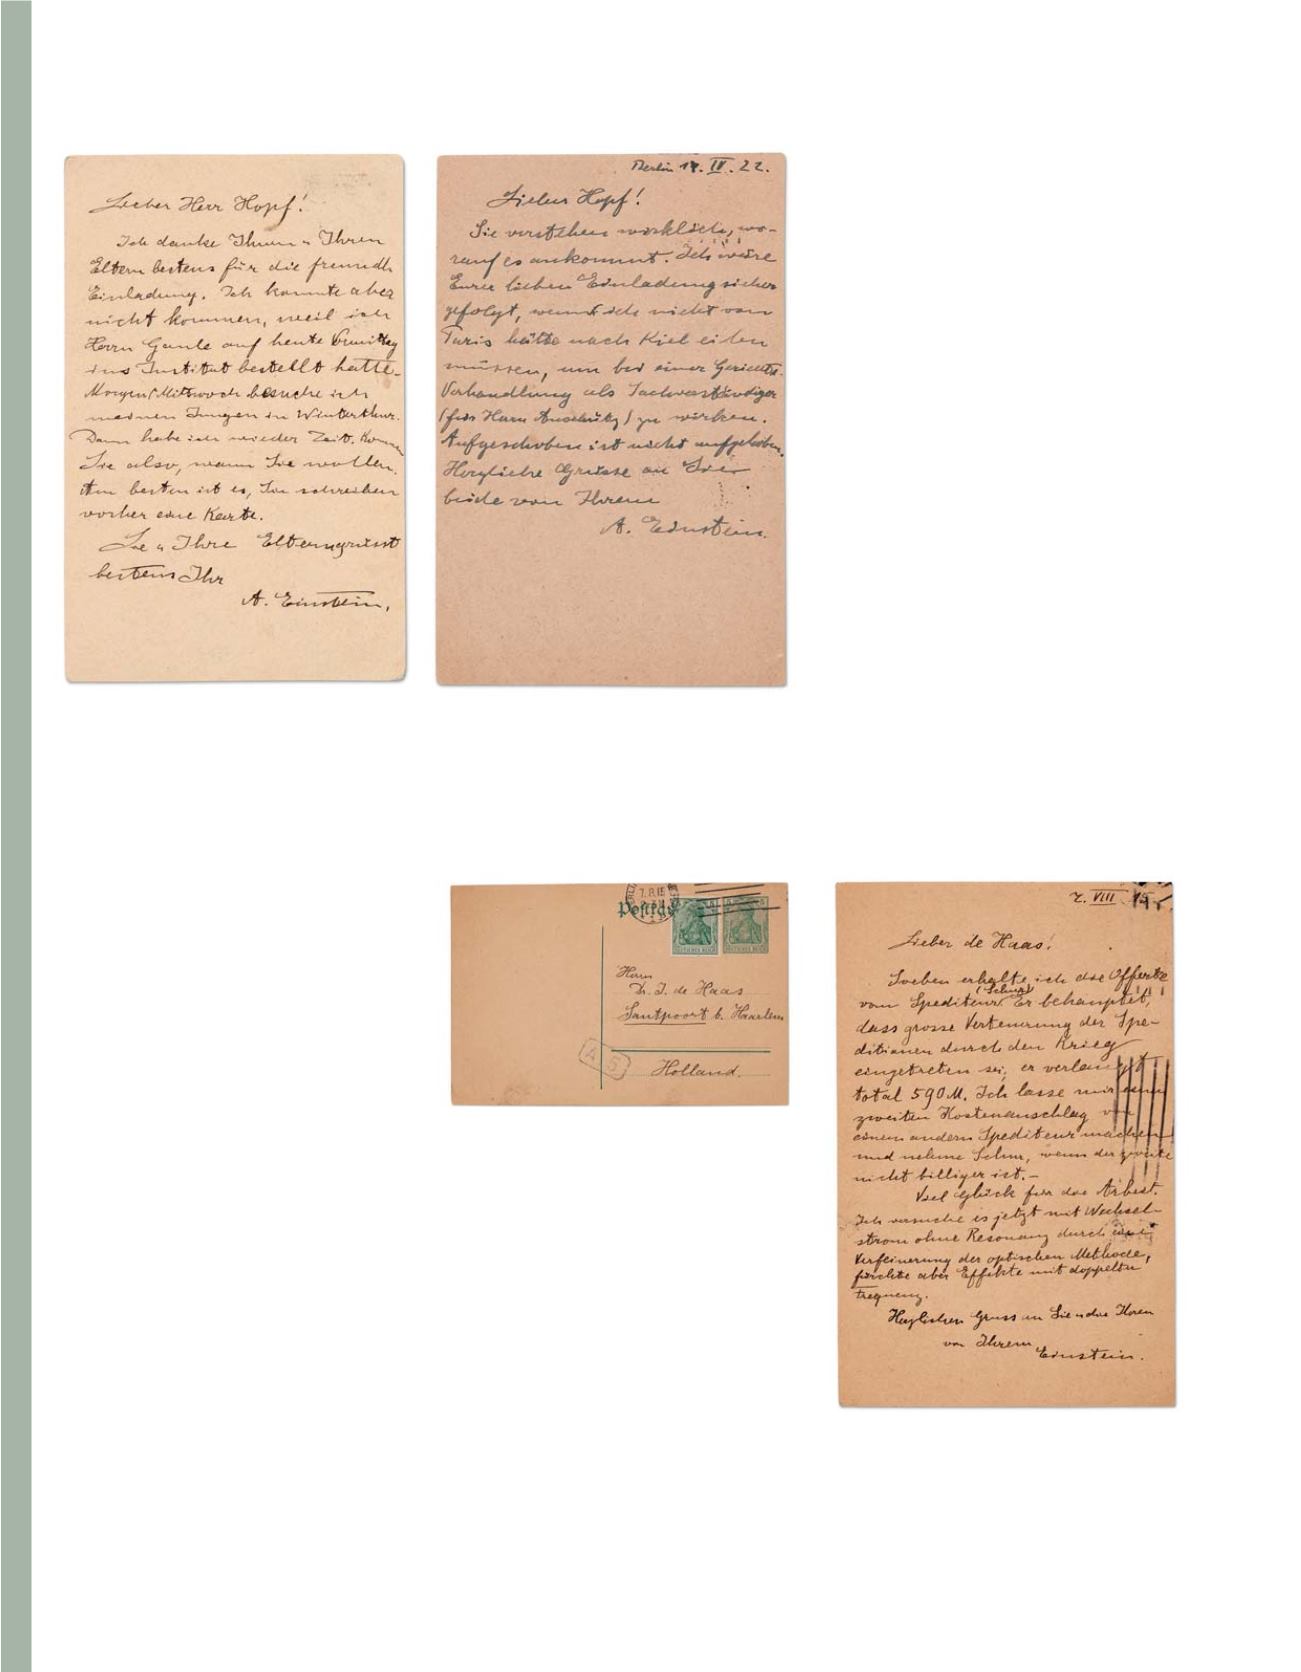 Lieber Herr Hopf!
Ich danke Ihnen u Ihren
Eltern bestens für die freundl.
Einladung. Ich konnte aber
nicht kommen, weil ich
Herrn Gaule auf heute Vormittag
ins Institut bestellt hatte.
Morgen Mittwoch besuche ich
meinen Jungen in Winterthur.
Dann habe ich wieder Zeit. Kommen
Sie also, wann Sie wollen.
Am besten ist es, Sie schreiben
vorher eine Karte.
Sie u Ihre Eltern grüsst
bestens Ihr
A. Einstein.
Berlin 17. IV. 22.
Lieber Hopf!
Sie verstehen wirklich, wo-
rauf es ankommt. Ich wäre
Eurer lieben Einladung sicher
gefolgt, wenn ich nicht von
Paris hätte nach Kiel eilen
müssen, um bei einer Gerichts-
Verhandlung als Sachverständiger
(für Herrn Anschütz) zu wirken.
Aufgeschoben ist nicht aufgehoben.
Herzliche Grüsse an Sie
beide von Ihrem
A. Einstein.
7.8.15
Postkarte
DEUTSCHES REICH
DEUTSCHES REICH
Herrn
Dr. J. de Haas
Santpoort b. Haarlem
A 5
Holland.
7. VIII 15.
Lieber de Haas!
Soeben erhalte ich die Offerte
vom Spediteur (Schur). Er behauptet,
dass grosse Verteuerung der Spe-
ditionen durch den Krieg
eingetreten sei; er verlangt
total 590 M. Ich lasse mir einen
zweiten Kostenanschlag von
einem andern Spediteur machen
und nehme Schur, wenn der zweite
nicht billiger ist.-
Viel Glück für die Arbeit.
Ich versuche es jetzt mit Wechsel-
strom ohne Resonanz durch
Verfeinerung der optischen Methode,
fürchte aber Effekte mit doppelter
Frequenz.
Herzlichen Gruss an Sie u die Ihren
von Ihrem
Einstein.